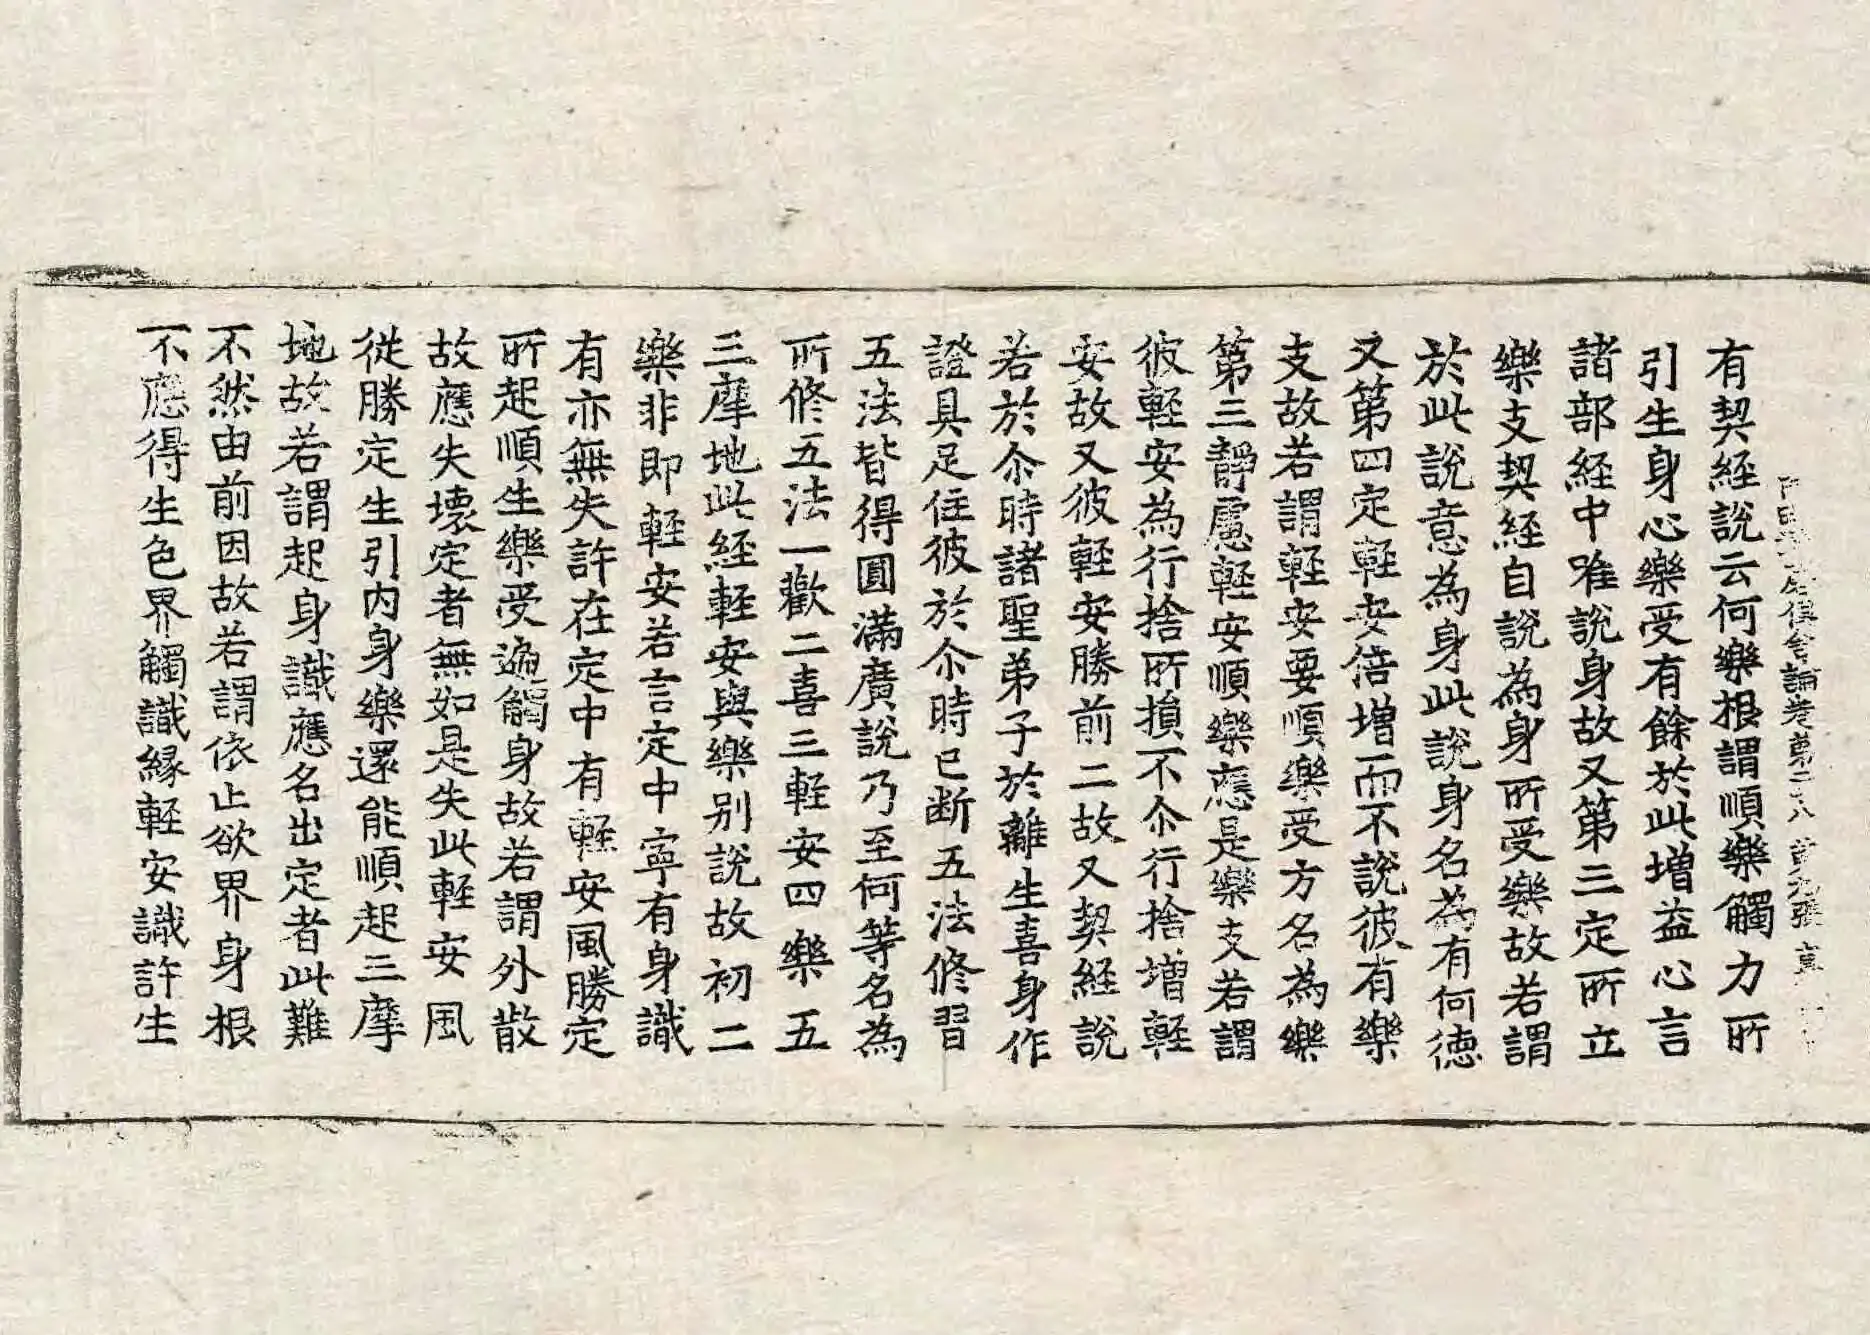 阿毗達磨俱舍論卷第二十八 第九張 章
有契経說云何樂根謂順樂觸力所
引生身心樂受有餘於此增益心言
諸部経中唯說身故又第三定所立
樂支契経自說為身所受樂故若謂
於此說意為身此說身名為有何德
又第四定輊安倍增而不說彼有樂
支故若謂輊安要順樂受方名為樂
第三靜慮輊安順樂應是樂支若謂
彼輊安為行捨所損不尒行捨增輊
安故又彼輊安勝前二故又契経說
若於尒時諸聖弟子於離生喜身作
證具足住彼於尒時已断五法修習
五法皆得圓滿廣說乃至何等名為
所修五法一歡二喜三輊安四樂五
三摩地此経輊安與樂別說故初二
樂非即輊安若言定中寧有身識
有亦無失許在定中有輊安風勝定
所起順生樂受遍觸身故若謂外散
故應失壞定者無如是失此輊安風
從勝定生引内身樂還能順起三摩
地故若謂起身識應名出定者此難
不然由前因故若謂依止欲界身根
不應得生色界觸識緣輊安識許生